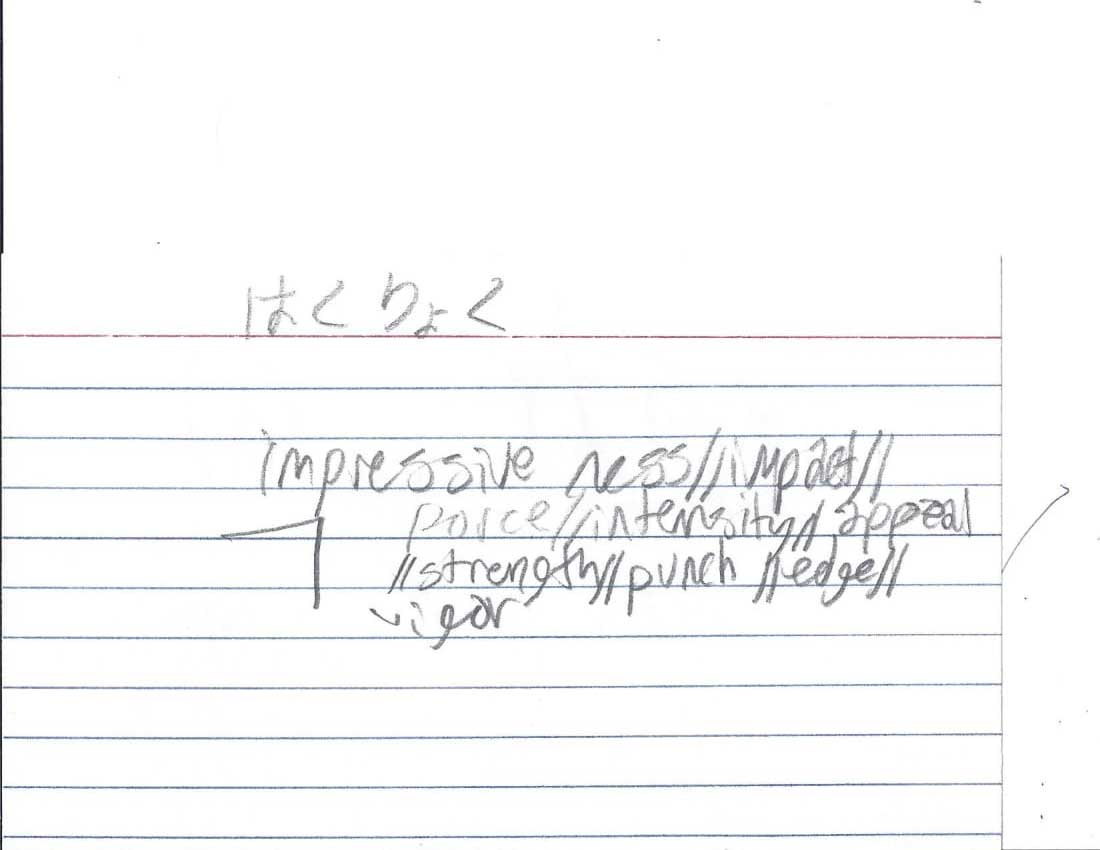 はくりょく
impressive ness//impact//
porce//intensity//appeal
//strength//punch//edge//
vigor